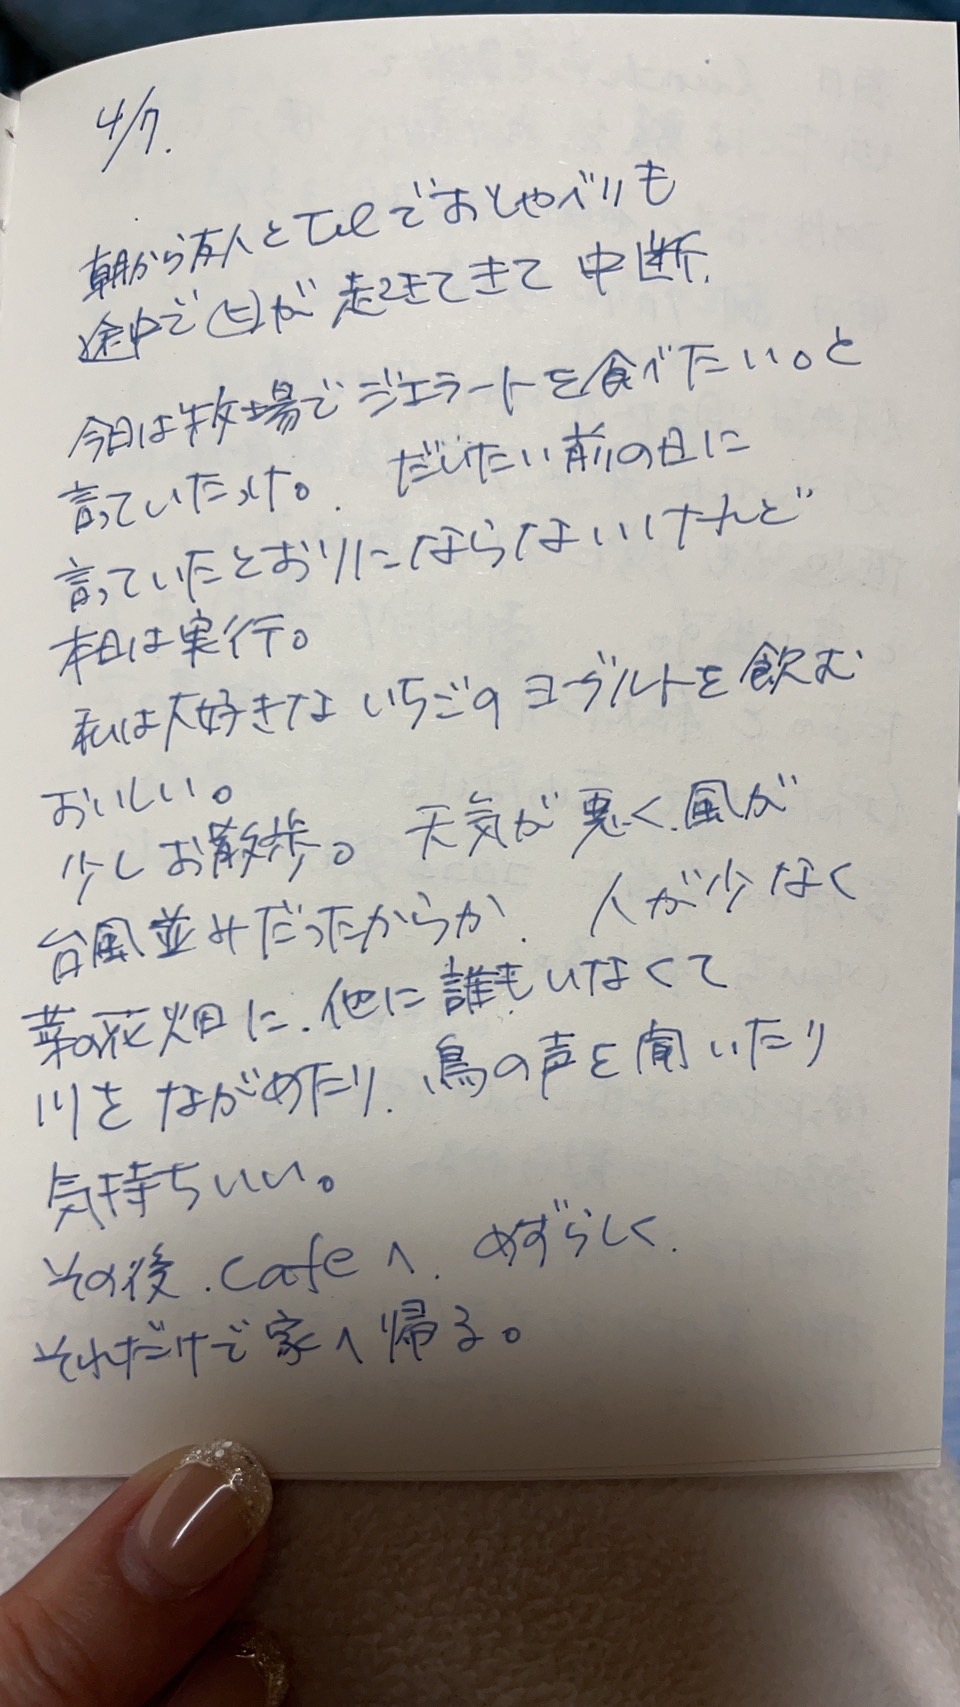 4/7.
朝から友人とTelでおしゃべりも
途中で が起きてきて 中断.
今日は牧場でジェラートを食べたい。と
言っていたっけ。 だいたい前の日に
言っていたとおりにはならないけれど
本日は実行。
私は大好きな いちごの ヨーグルトを飲む
おいしい。
少しお散歩。 天気が悪く、風が
台風並みだったからか、 人が少なく
菜の花畑に、他に誰もいなくて
川を ながめたり、鳥の声を聞いたり
気持ちいい。
その後、cafeへ、 めずらしく、
それだけで家へ帰る。